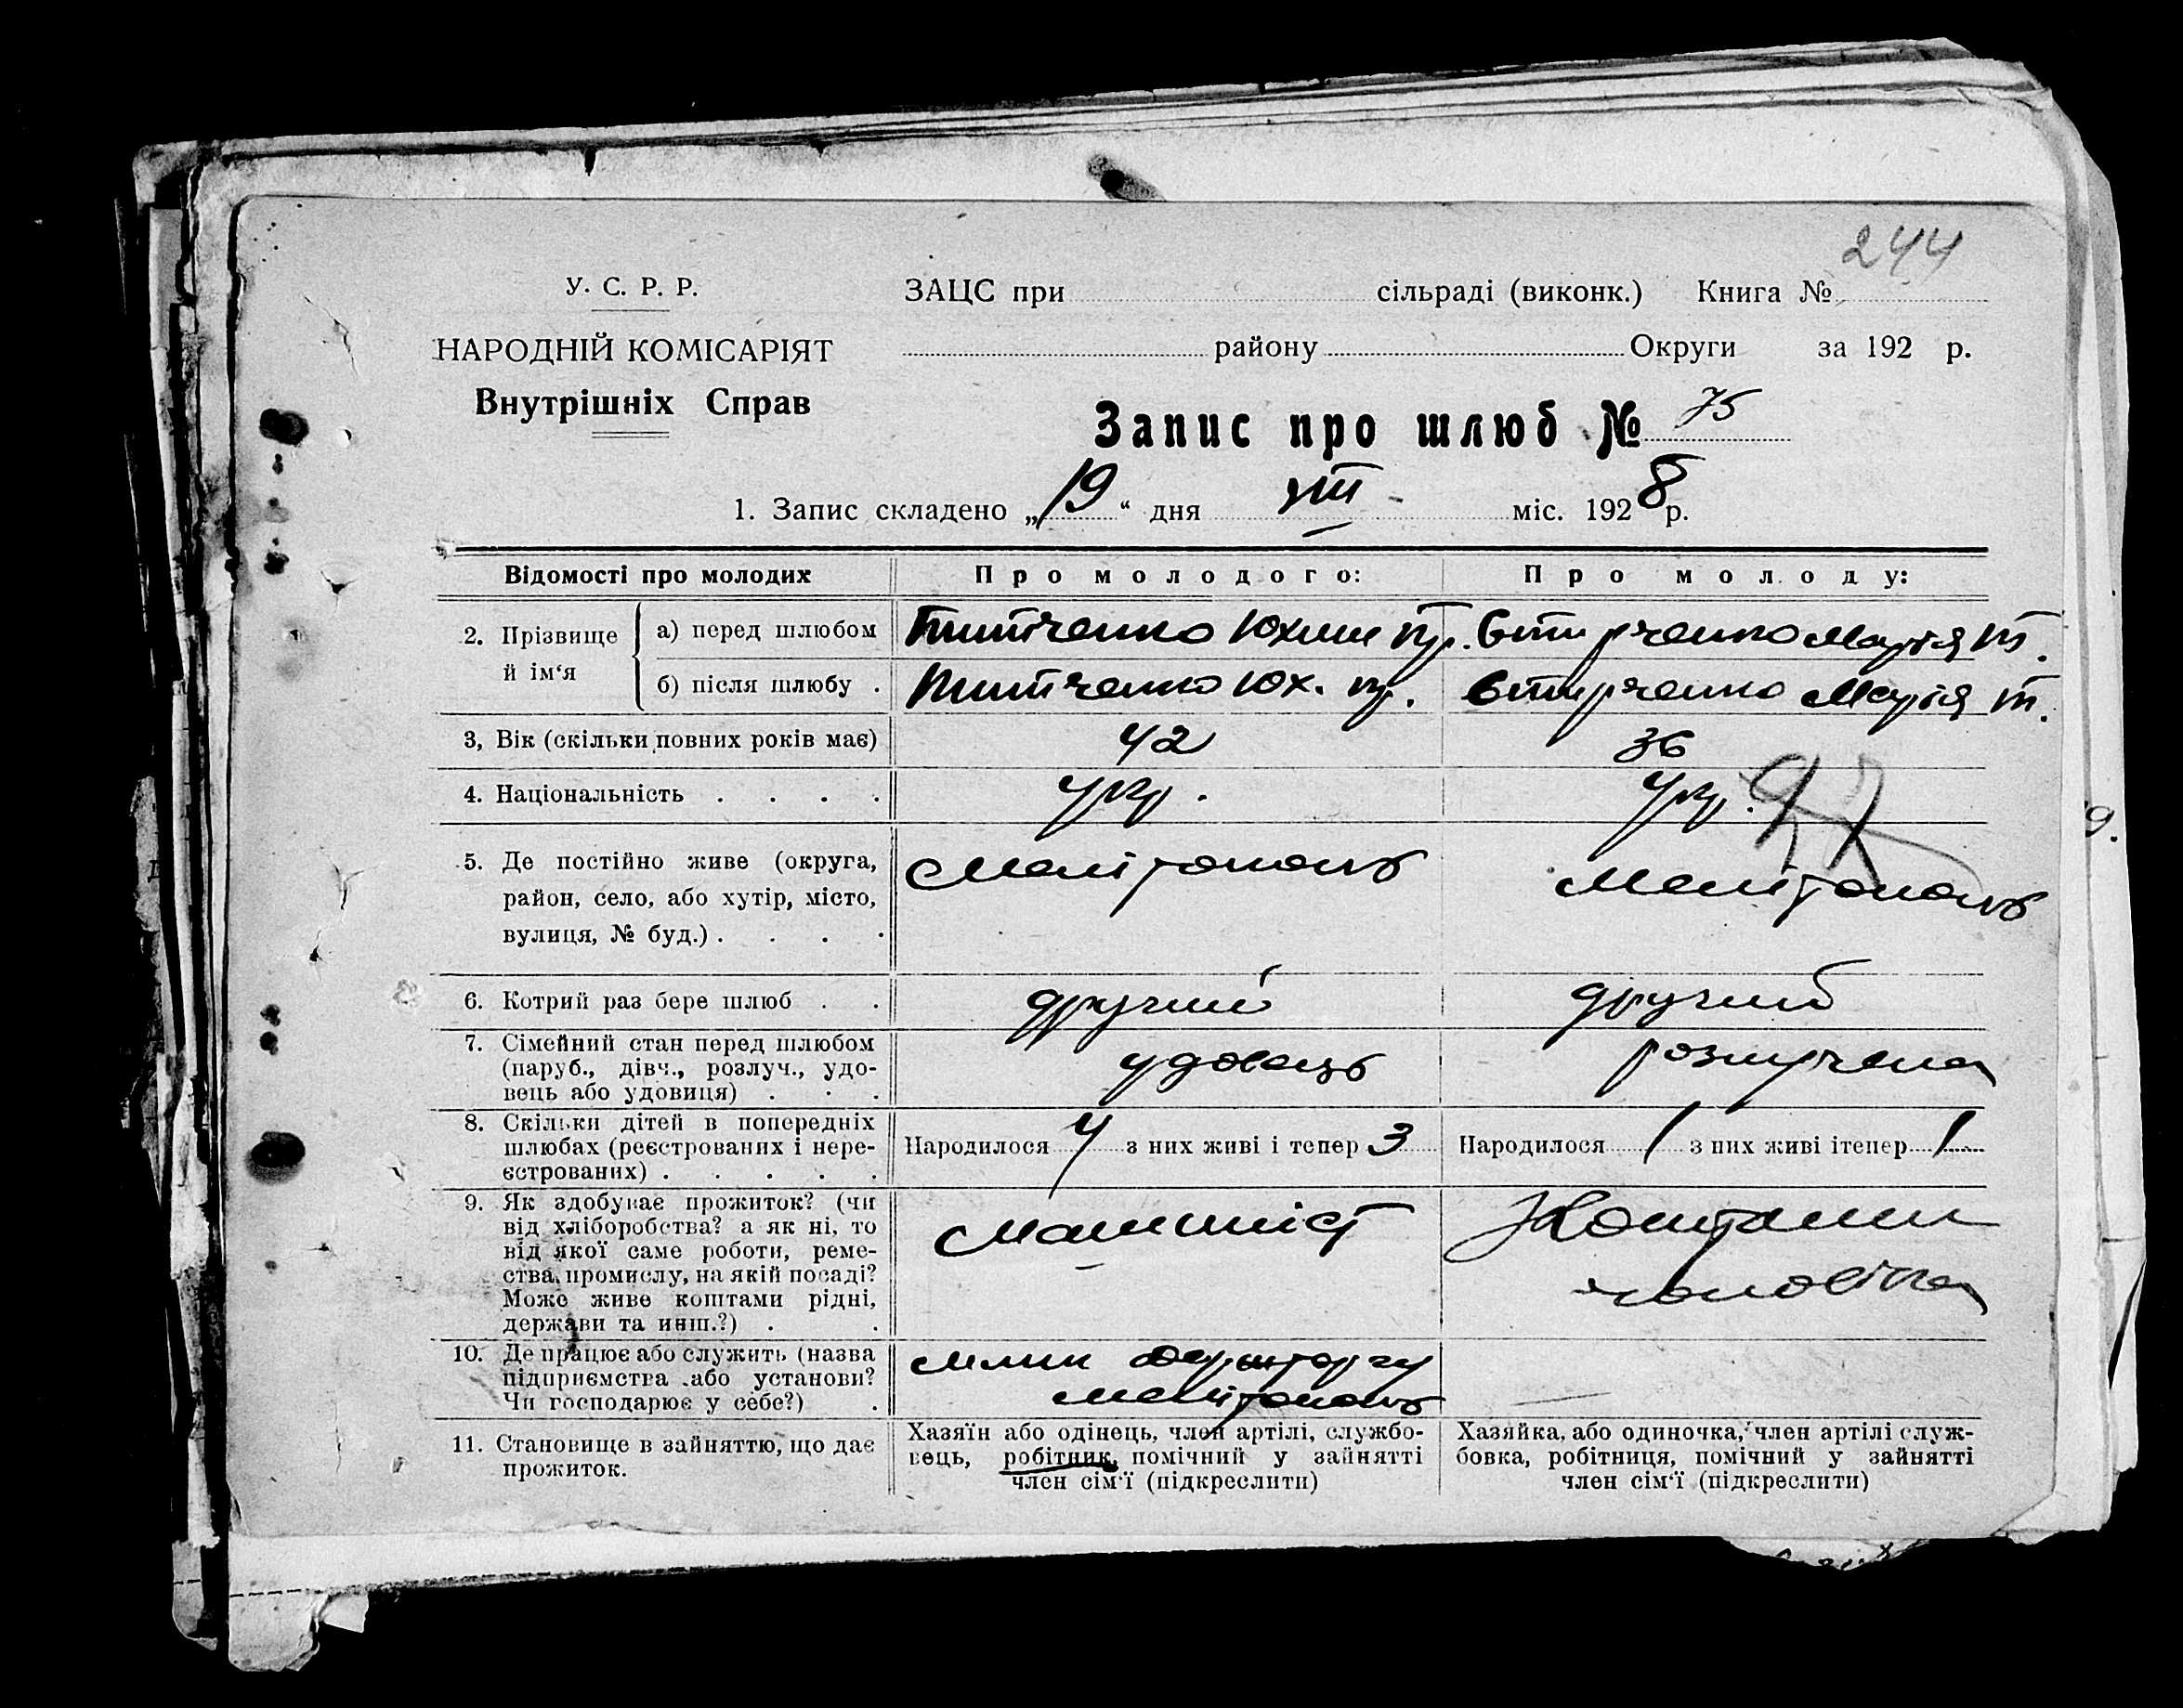 244
У. С. Р. Р.
НАРОДНІЙ КОМІСАРІЯТ
Внутрішніх Справ
ЗАЦС при сільраді (виконк.) Книга №
району Округи за 192 р.
Запис про шлюб № 75
1. Запис складено „19“ дня VIII міс. 1928 р.
Відомості про молодих Про молодого: Про молоду:
2. Прізвище й ім‘я
а) перед шлюбом Юхим Марія
б) після шлюбу . Юх. Марія
3, Вік (скільки повних років має) 42 36
4. Національність . . . . укр. укр.
97
5. Де постійно живе (округа,
район, село, або хутір, місто,
вулиця, № буд.) . . . .
Мелітополь Мелітополь
6. Котрий раз бере шлюб . . другий другий
7. Сімейний стан перед шлюбом
(паруб., дівч., розлуч., удо-
вець або удовиця) . . .
удовець розлучена
8. Скільки дітей в попередніх
шлюбах (реєстрованих і нере-
єстрованих) . . . . .
Народилося 4 з них живі і тепер 3 Народилося 1 з них живі ітепер 1
9. Як здобуває прожиток? (чи
від хліборобства? а як ні, то
від якої саме роботи, реме-
ства, промислу, на якій посаді?
Може живе коштами рідні,
держави та инш.?) . .
машиніст
Коштами
чоловіка
10. Де працює або служить (назва
підприємства або установи?
Чи господарює у себе?) .
млин
Мелітополь
11. Становище в зайняттю, що дає
прожиток.
Хазяїн або одінець, член артілі, службо-
вець, робітник, помічний у зайнятті
член сім‘ї (підкреслити)
Хазяйка, або одиночка, член артілі служ-
бовка, робітниця, помічний у зайнятті
член сім‘ї (підкреслити)